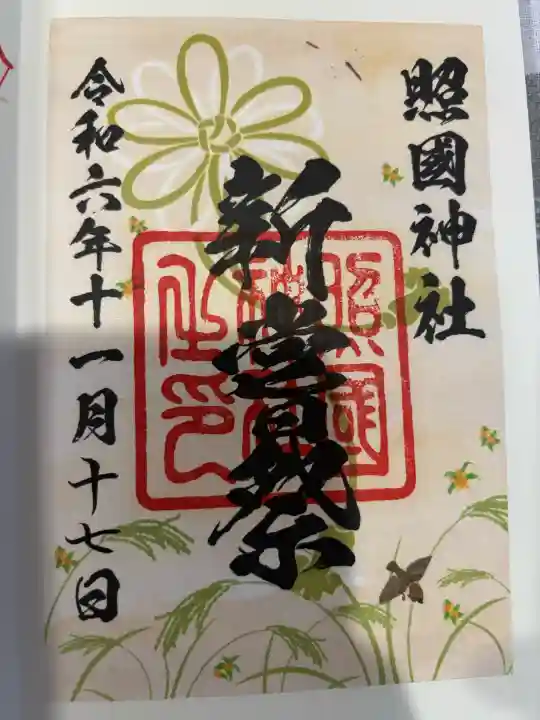 照國神社
新嘗祭
照國神社之印
令和六年十一月十七日